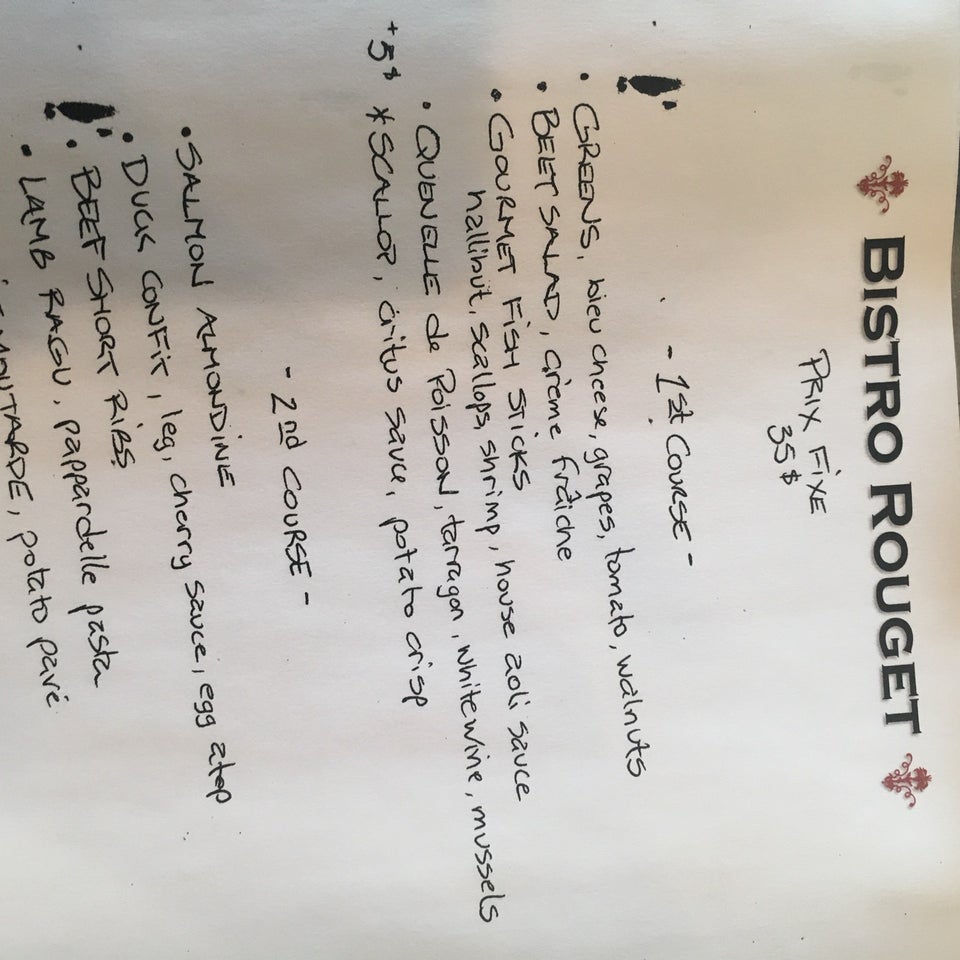 BISTRO ROUGET
PRIX FIXE
35$
- 1st COURSE -
• GREENS, bleu cheese, grapes, tomato, walnuts
• BEET SALAD, crème fraîche
• GOURMET FISH STICKS
hallibut, scallops, shrimp, house aoli sauce
• QUENELLE de POISSON, tarragon, white wine, mussels
+5$ * SCALLOP, critus sauce, potato crisp
- 2nd COURSE -
• SALMON ALMONDINE
• DUCK CONFIT, leg, cherry sauce, egg atop
• BEEF SHORT RIBS
• LAMB RAGU, pappardelle pasta
MOUTARDE, potato pavé